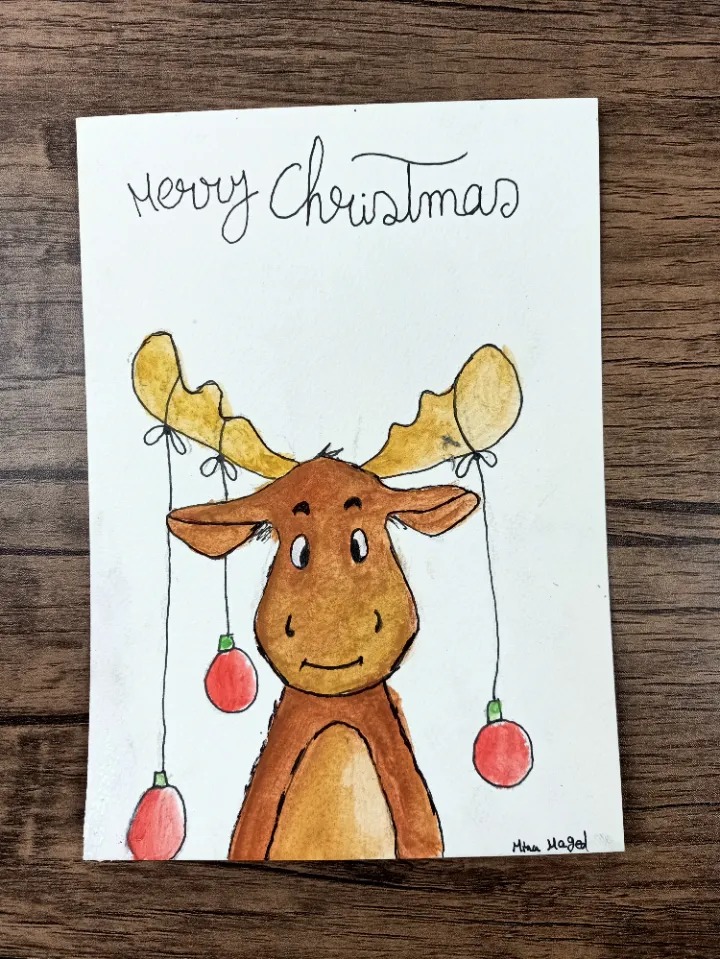 Merry Christmas
Mina Maged